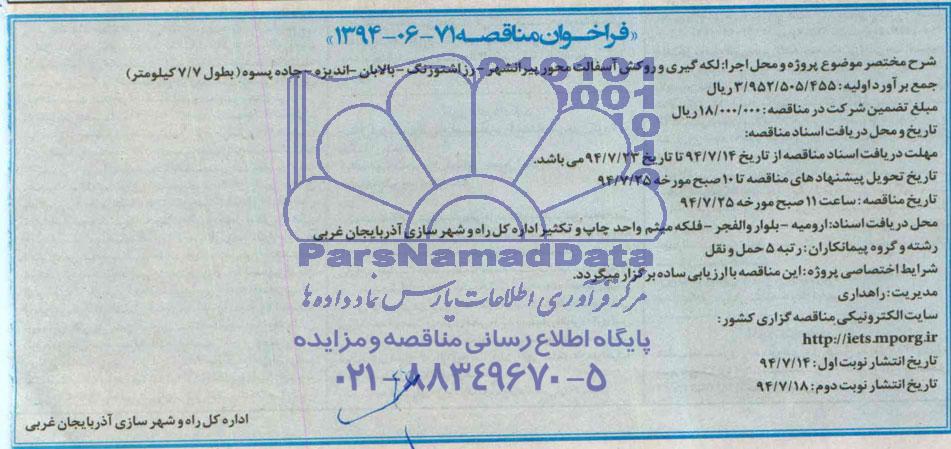 «فراخوان مناقصه ۷۱-۰۶-۱۳۹۴»
شرح مختصر موضوع پروژه و محل اجرا: لکه گیری و روکش آسفالت محور پیرانشهر - رز اشنوزنگ - بالابان - اندیزه - جاده پسوه (بطول ۷/۷ کیلومتر)
جمع برآورد اولیه: ۳/۹۵۲/۵۰۵/۴۵۵ ریال
مبلغ تضمین شرکت در مناقصه: ۱۸/۰۰۰/۰۰۰ ریال
تاریخ و محل دریافت اسناد مناقصه:
مهلت دریافت اسناد مناقصه از تاریخ ۹۴/۷/۱۴ تا تاریخ ۹۴/۷/۲۳ می باشد.
تاریخ تحویل پیشنهادهای مناقصه تا ۱۰ صبح مورخه ۹۴/۷/۲۵
تاریخ مناقصه: ساعت ۱۱ صبح مورخه ۹۴/۷/۲۵
محل دریافت اسناد: ارومیه - بلوار والفجر - فلکه میثم واحد چاپ و تکثیر اداره کل راه و شهر سازی آذربایجان غربی
رشته و گروه پیمانکاران: رتبه ۵ حمل و نقل
شرایط اختصاصی پروژه: این مناقصه با ارزیابی ساده برگزار میگردد.
مدیریت: راهداری
سایت الکترونیکی مناقصه گزاری کشور:
http://iets.mporg.ir
تاریخ انتشار نوبت اول: ۹۴/۷/۱۴
تاریخ انتشار نوبت دوم: ۹۴/۷/۱۸
اداره کل راه و شهر سازی آذربایجان غربی
ParsNamadData
مرکز فرآوری اطلاعات پارس نماد داده ها
پایگاه اطلاع رسانی مناقصه و مزایده
۰۲۱-۸۸۳۴۹۶۷۰-۵